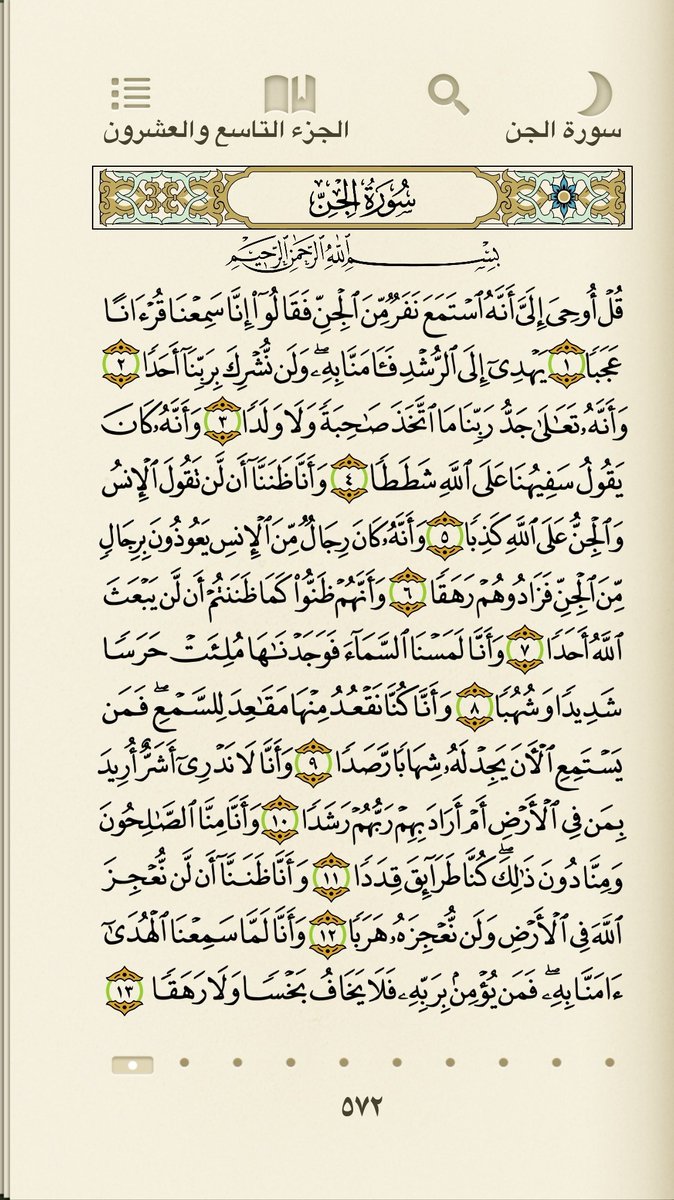 سورة الجن
الجزء التاسع والعشرون
سُورَةُ الجِنِّ
بِسْمِ اللَّهِ الرَّحْمَٰنِ الرَّحِيمِ
قُلْ أُوحِيَ إِلَيَّ أَنَّهُ ٱسْتَمَعَ نَفَرٌ مِّنَ ٱلْجِنِّ فَقَالُوٓا۟ إِنَّا سَمِعْنَا قُرْءَانًا
عَجَبًا ١ يَهْدِىٓ إِلَى ٱلرُّشْدِ فَـَٔامَنَّا بِهِۦ ۖ وَلَن نُّشْرِكَ بِرَبِّنَآ أَحَدًا ٢
وَأَنَّهُۥ تَعَٰلَىٰ جَدُّ رَبِّنَا مَا ٱتَّخَذَ صَٰحِبَةً وَلَا وَلَدًا ٣ وَأَنَّهُۥ كَانَ
يَقُولُ سَفِيهُنَا عَلَى ٱللَّهِ شَطَطًا ٤ وَأَنَّا ظَنَنَّآ أَن لَّن تَقُولَ ٱلْإِنسُ
وَٱلْجِنُّ عَلَى ٱللَّهِ كَذِبًا ٥ وَأَنَّهُۥ كَانَ رِجَالٌ مِّنَ ٱلْإِنسِ يَعُوذُونَ بِرِجَالٍ
مِّنَ ٱلْجِنِّ فَزَادُوهُمْ رَهَقًا ٦ وَأَنَّهُمْ ظَنُّوا۟ كَمَا ظَنَنتُمْ أَن لَّن يَبْعَثَ
ٱللَّهُ أَحَدًا ٧ وَأَنَّا لَمَسْنَا ٱلسَّمَآءَ فَوَجَدْنَٰهَا مُلِئَتْ حَرَسًا
شَدِيدًا وَشُهُبًا ٨ وَأَنَّا كُنَّا نَقْعُدُ مِنْهَا مَقَٰعِدَ لِلسَّمْعِ ۖ فَمَن
يَسْتَمِعِ ٱلْـَٔانَ يَجِدْ لَهُۥ شِهَابًا رَّصَدًا ٩ وَأَنَّا لَا نَدْرِىٓ أَشَرٌّ أُرِيدَ
بِمَن فِى ٱلْأَرْضِ أَمْ أَرَادَ بِهِمْ رَبُّهُمْ رَشَدًا ١٠ وَأَنَّا مِنَّا ٱلصَّٰلِحُونَ
وَمِنَّا دُونَ ذَٰلِكَ ۖ كُنَّا طَرَآئِقَ قِدَدًا ١١ وَأَنَّا ظَنَنَّآ أَن لَّن نُّعْجِزَ
ٱللَّهَ فِى ٱلْأَرْضِ وَلَن نُّعْجِزَهُۥ هَرَبًا ١٢ وَأَنَّا لَمَّا سَمِعْنَا ٱلْهُدَىٰٓ
ءَامَنَّا بِهِۦ ۖ فَمَن يُؤْمِنۢ بِرَبِّهِۦ فَلَا يَخَافُ بَخْسًا وَلَا رَهَقًا ١٣
٥٧٢